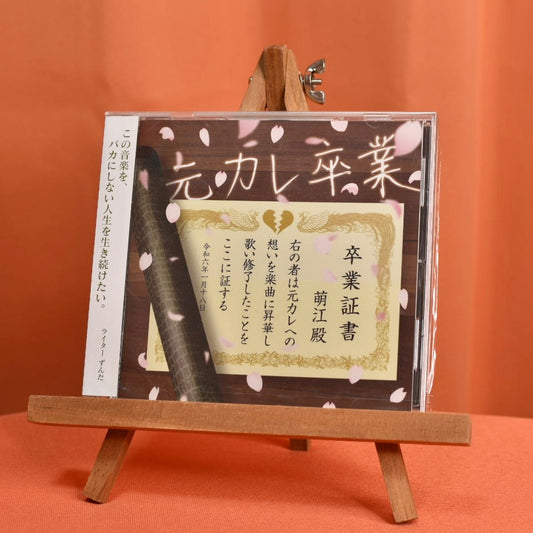 この音楽を、
バカにしない人生を生き続けたい。
ライター ずんだ
元カレ卒業
卒業証書
萌江殿
右の者は元カレへの
想いを楽曲に昇華し
歌い修了したことを
ここに証する
令和六年一月十八日